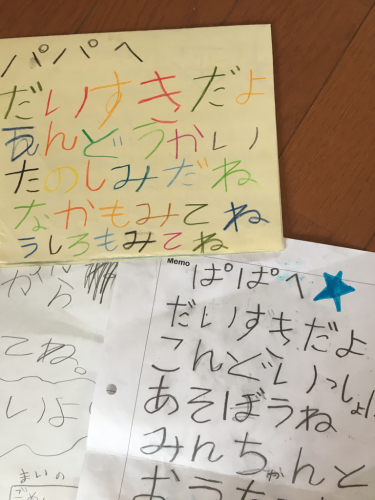 パパへ
だいすきだよ
うんどうかい
たのしみだね
なかもみてね
うしろもみてね
Memo
ぱぱへ
だいすきだよ
こんどいっしょに
あそぼうね
みんちゃんと
おうち
から
てね。
いよ
まいの
ごめ